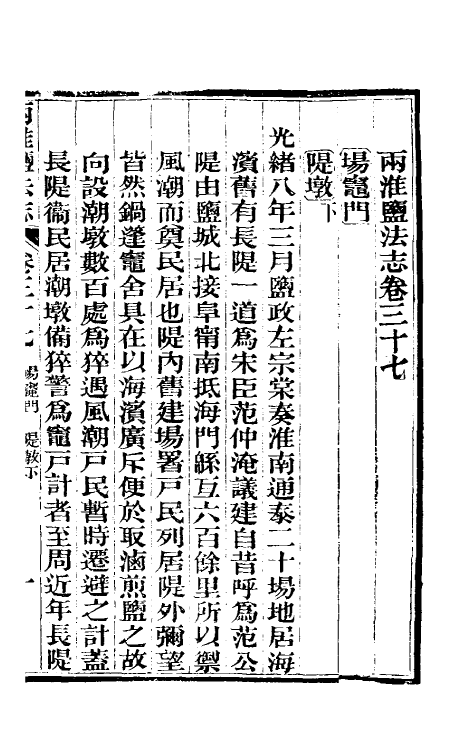 兩淮鹽法志卷三十七
場竈門
隄墩下
光緒八年三月鹽政左宗棠奏淮南通泰二十場地居海
濱舊有長隄一道爲宋臣范仲淹議建自昔呼爲范公
隄由鹽城北接阜甯南抵海門緜亙六百餘里所以禦
風潮而奠民居也隄內舊建場署戸民列居隄外彌望
皆然鍋䉶竈舍具在以海濱廣斥便於取滷煎鹽之故
向設潮墩數百處爲猝遇風潮戸民暫時遷避之計蓋
長隄衞民居潮墩備猝警爲竈戸計者至周近年長隄
兩淮鹽法志 卷三十七 場竈門 隄墩下 一